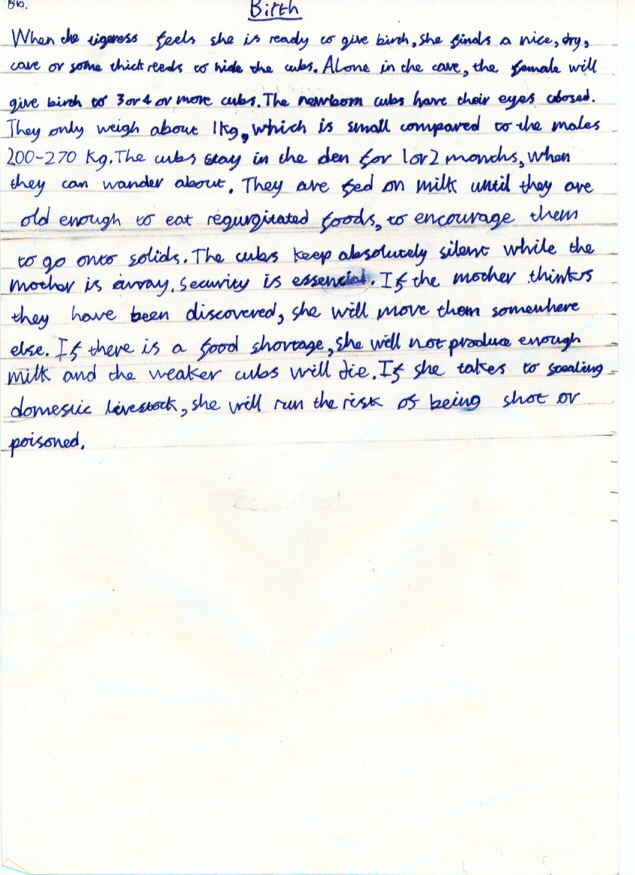 Birth
When the tigeress feels she is ready to give birth, she finds a nice, dry,
cave or some thick reeds to hide the cubs. Alone in the cave, the female will
give birth to 3 or 4 or more cubs. The newborn cubs have their eyes closed.
They only weigh about 1kg, which is small compared to the males
200-270 Kg. The cubs stay in the den for 1 or 2 months, when
they can wander about. They are fed on milk until they are
old enough to eat regurgitated foods, to encourage them
to go onto solids. The cubs keep absolutely silent while the
mother is away. Security is essencial. If the mother thinks
they have been discovered, she will move them somewhere
else. If there is a food shortage, she will not produce enough
milk and the weaker cubs will die. If she takes to stealing
domestic livestock, she will run the risk of being shot or
poisoned.